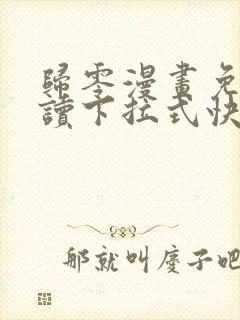 歸零漫畫免
讀下拉式快
那就叫慶子吧